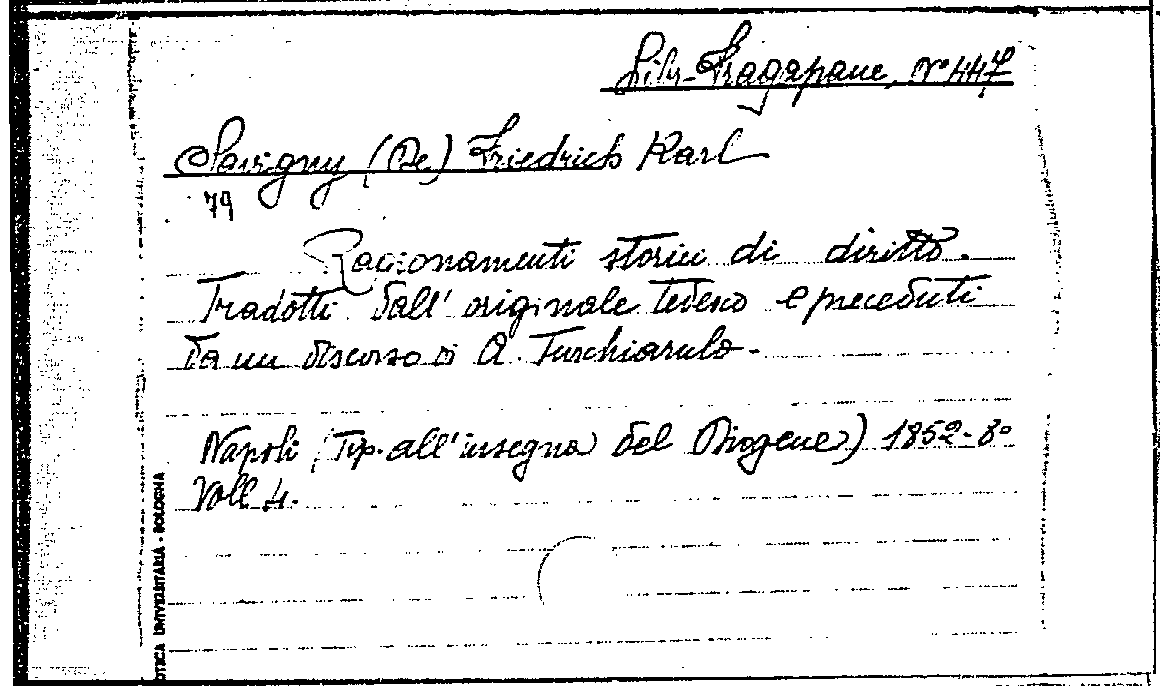 Libr-Fragapane, N° 447
Savigny (De) Friedrich Karl
79
Ragionamenti storici di diritto.
Tradotti dall' originale Tedesco e preceduti
da un discorso di A. Turchiarulo.
Napoli (Tip. all'insegna del Diogene) 1852-8°
Voll. 4.
OTECA UNIVERSITARIA - BOLOGNA